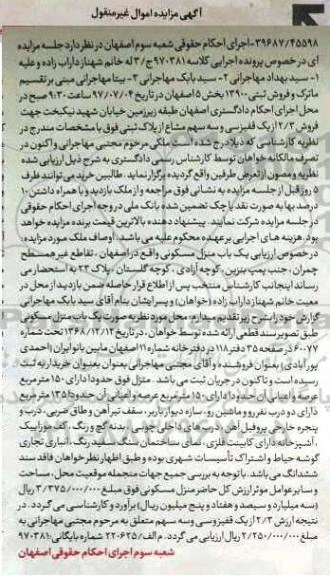 آگهی مزایده اموال غیرمنقول
۳۹۶۸۷/۴۵۵۹۸-اجرای احکام حقوقی شعبه سوم اصفهان در نظر دارد جلسه مزایده
ای در خصوص پرونده اجرایی کلاسه ۹۷۰۳۸۱ج/۳ له خانم شهناز داراب زاده و علیه
۱- سید بهداد مهاجرانی ۲- سید بابک مهاجرانی ۳- بیتا مهاجرانی مبنی بر تقسیم
ماترک و فروش ثبتی ۱۳۹۰۰ بخش ۵ اصفهان در تاریخ ۹۷/۰۷/۰۴ ساعت ۹:۳۰ صبح در
محل اجرای احکام دادگستری اصفهان طبقه زیرزمین خیابان شهید نیکبخت جهت
فروش ۲/۳ از یک قفیز سی و سه سهم مشاع از پلاک ثبتی فوق با مشخصات مندرج در
نظریه کارشناسی که ذیلا درج شده است. ملکی مرحوم مجتبی مهاجرانی و اکنون در
تصرف مالکانه خواهان توسط کارشناس رسمی دادگستری به شرح ذیل ارزیابی شده
نظریه و مصون از تعرض طرفین واقع گردیده برگزار نماید. طالبین خرید می توانند ظرف
۵ روز قبل از جلسه مزایده به نشانی فوق مراجعه و از ملک بازدید و با همراه داشتن ۱۰
درصد بها به صورت نقد یا چک تضمین شده بانک ملی در وجه اجرای احکام حقوقی
در جلسه مزایده شرکت نمایند. پیشنهاد دهنده بالاترین قیمت برنده مزایده خواهد
بود. هزینه های اجرایی بر عهده محکوم علیه می باشد. اوصاف ملک مورد مزایده:
در خصوص ارزیابی یک باب منزل مسکونی واقع در اصفهان، تقاطع غیر همسطح
چمران، جنب پمپ بنزین، کوچه آزادی، کوچه گلستان، پلاک ۲۳ به استحضار می
رساند اینجانب کارشناس منتخب پس از اطلاع قرار حاصله ضمن بازدید از محل در
معیت خانم شهناز داراب زاده (خواهان) و پسر ایشان بنام آقای سید بابک مهاجرانی
گزارش خود را بشرح زیر تقدیم میدارم: محل مورد نظریه صورت یک باب منزل مسکونی
طبق تصویر سند قطعی ارائه شده توسط خواهان، در تاریخ ۱۳۶۸/۱۲/۱۲ تحت شماره
۶۰۰۷۷ در صفحه ۳۵ دفتر ۱۱۸ در دفترخانه شماره ۱۱ اصفهان مابین بانو ایران (احمدی
پورآبادی) بعنوان فروشنده و آقای مجتبی مهاجرانی بعنوان بعنوان خریدار به ثبت
رسیده است و تاکنون در جریان ثبت می باشد. منزل فوق حدودا دارای ۱۵۰ مترمربع
عرصه و اعیانی آن حدودا دارای ۱۵۰ مترمربع عرصه و اعیانی آن حدودا ۱۳۵ مترمربع
دارای دو درب نفررو و ماشین رو، سازه دیوار باربر، سقف تیرآهن و طاق ضربی، درب و
پنجره خارجی پروفیل آهن، درب های داخلی چوبی، بدنه گچ و رنگ، کف موزاییک
، آشپزخانه دارای کابینت فلزی، نمای ساختمان سنگ سفید رنگ، انباری تجاری
گوشه حیاط و اشتراک تأسیسات شهری بوده و طبق اظهار نظر خواهان فاقد سند
ششدانگ می باشد. با توجه به بررسی جمیع جهات منجمله موقعیت محل، مساحت
و سایر عوامل موثر ارزش کل حاضر منزل مسکونی فوق مبلغ ۳/۳۷۵/۰۰۰/۰۰۰ ریال
(سه میلیارد و سیصد و هفتاد و پنج میلیون ریال) برآورد و کارشناسی می گردد. در
نتیجه ارزش ۲/۳ از یک قفیز سی و سه سهم متعلق به مرحوم مجتبی مهاجرانی به
مبلغ ۲/۲۵۰/۰۰۰/۰۰۰ ریال ارزیابی می گردد. م الف: ۲۲۰۶۲۵ شماره بایگانی: ۹۷۰۳۸۱
شعبه سوم اجرای احکام حقوقی اصفهان